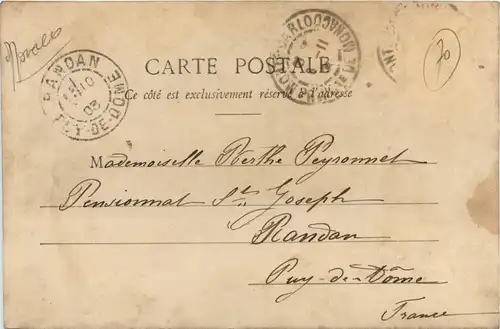 Monaco
RANDAN
03
PUY-DE-DOME
70
CARTE POSTALE
Ce côté est exclusivement réservé à l'adresse
Mademoiselle Berthe Peyronnet
Pensionnat St. Joseph
Randan
Puy-de-Dôme
France